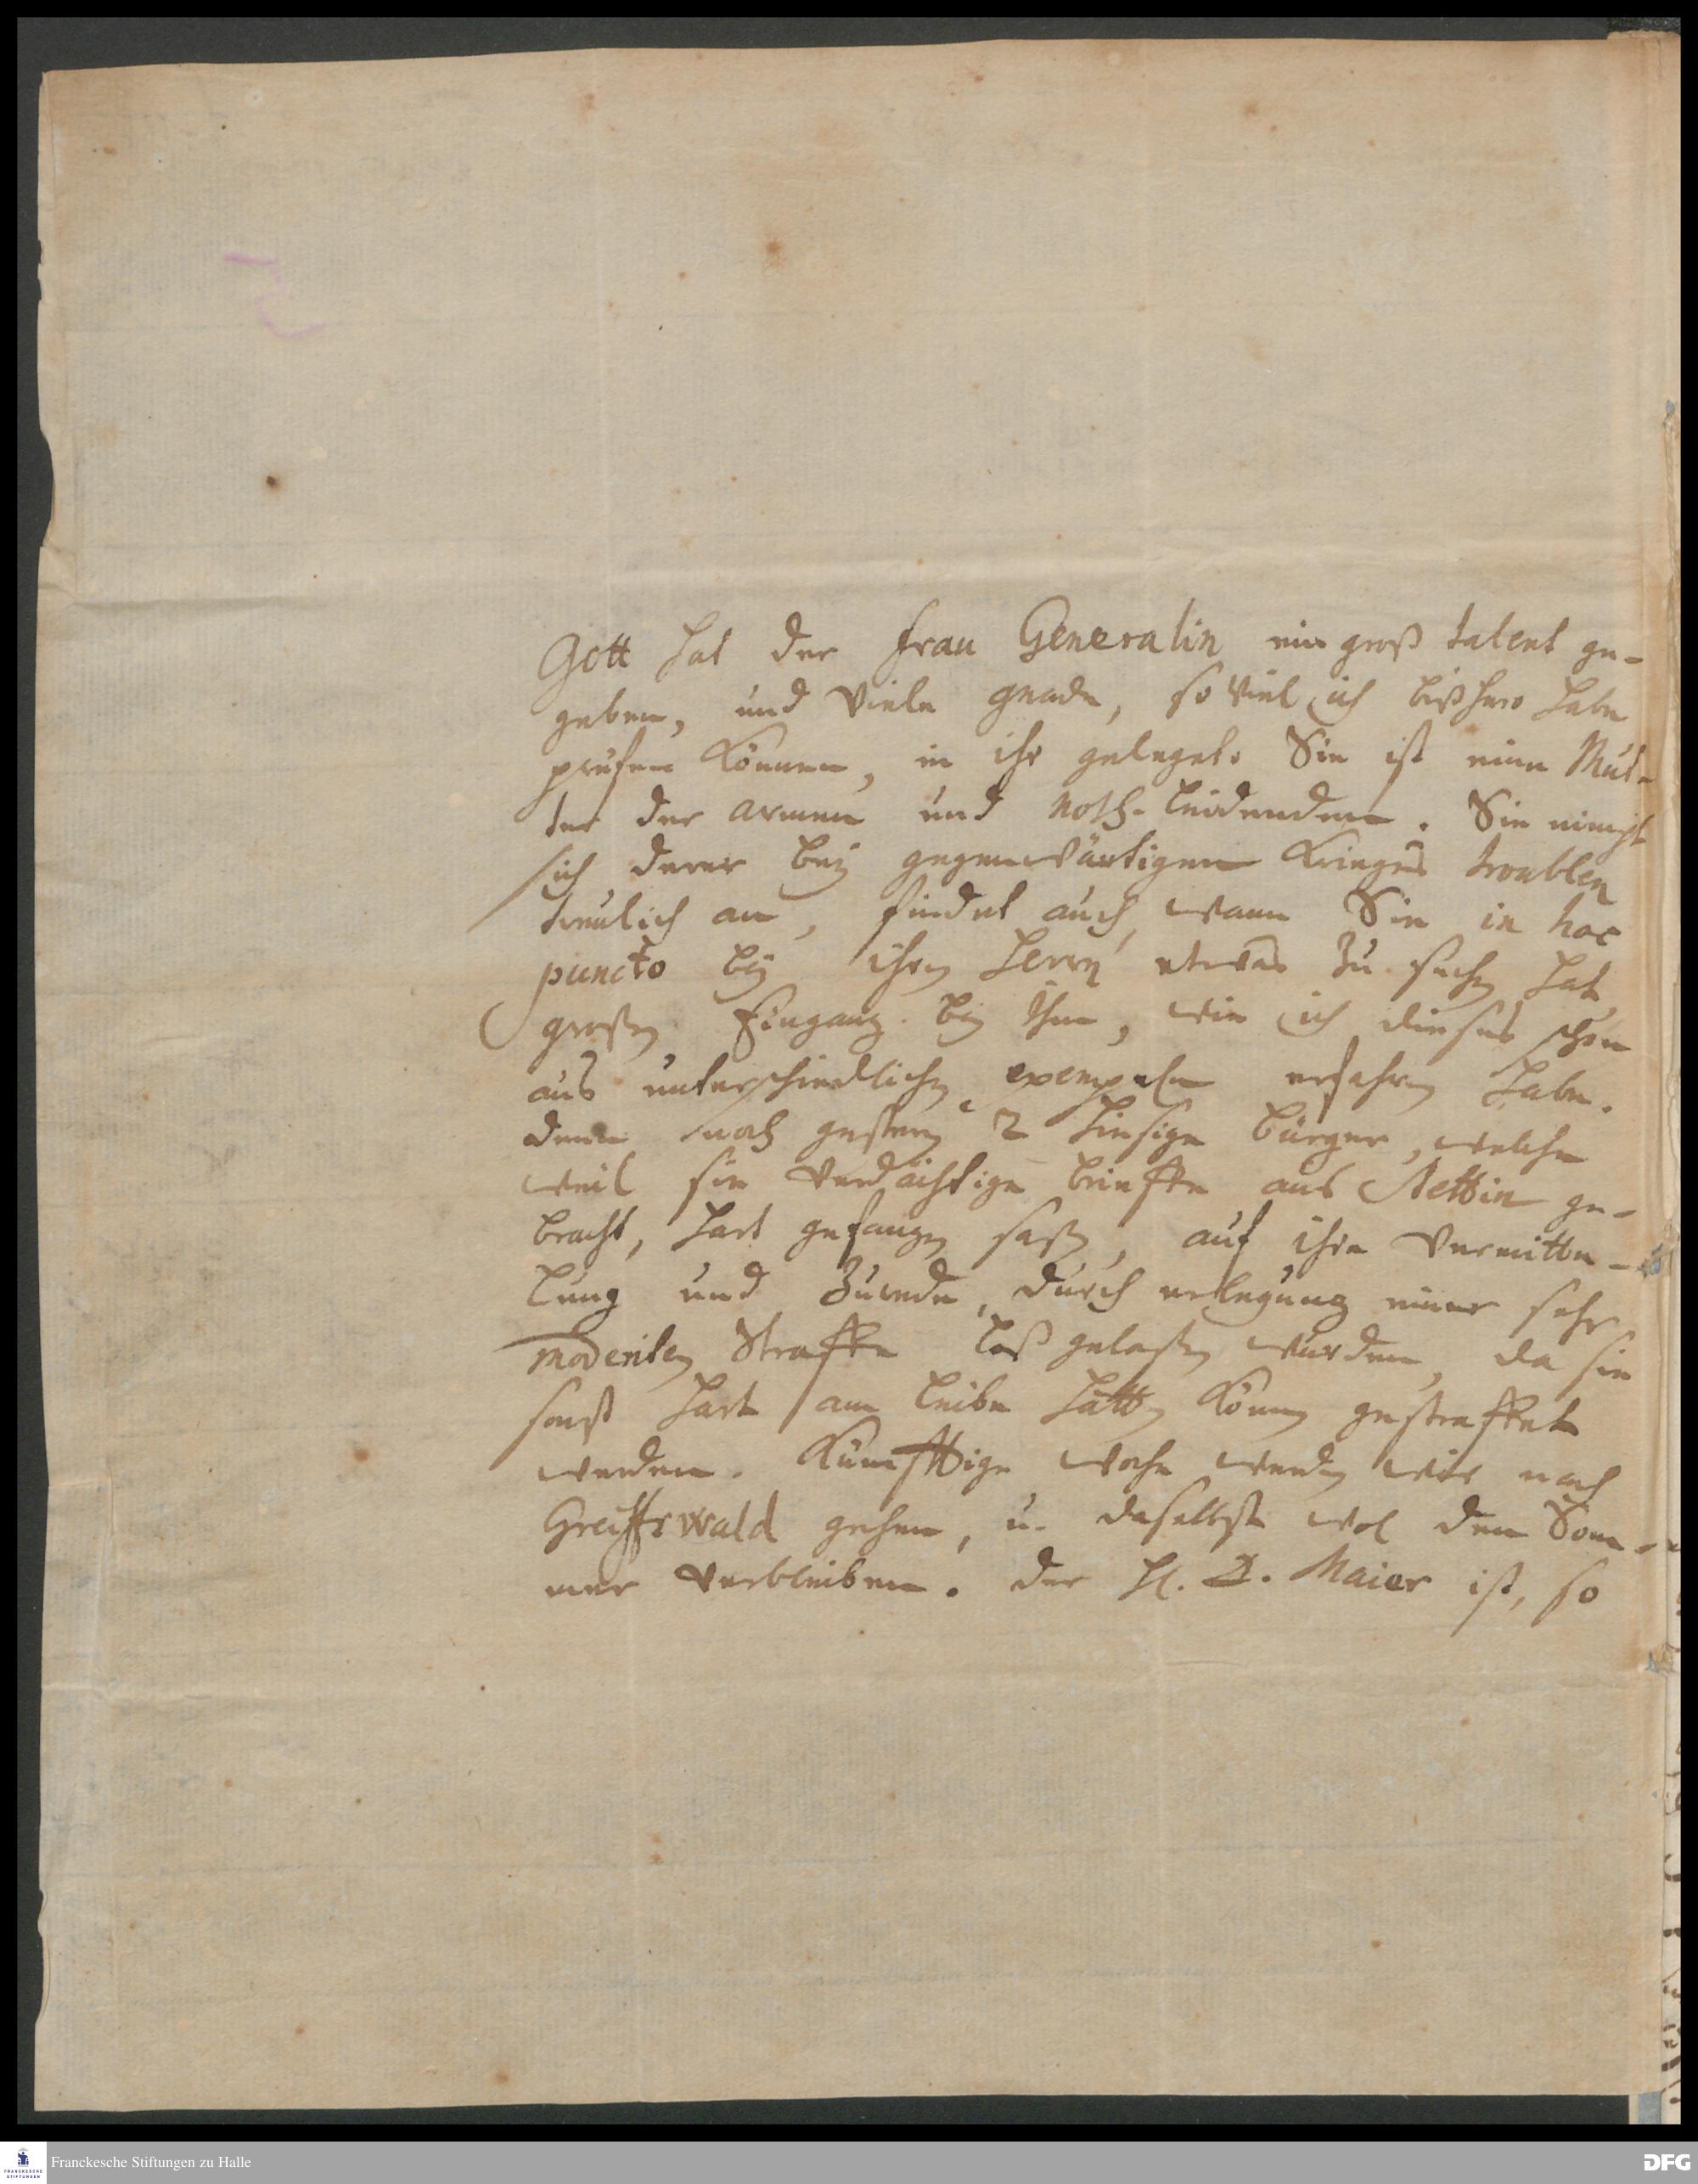 Gott hat der Frau Generalin ein groß talent ge-
geben, und viele gnade, so viel ich bißhero habe
prüfen können, in ihr geleget. Sie ist eine Mut-
ter der armen und Noth-leidenden. Sie nimpt
sich derer bey gegenwärtigen Krieges troublen
treulich an, findet auch, wann Sie in hoc
puncto bey ihren Herrn etwas zu suchen hat
großen Eingang bey Ihm, wie ich dieses schon
aus unterschiedlichen exempeln erfahren habe.
denn noch gestern 2 hiesige bürger, welche
weil sie verdächtige brieffe aus Stettin ge-
bracht, hart gefangen saßen, auf ihre vermitte-
lung und Zurede, durch erlegung einer sehr
moderiten Straffe loß gelaßen wurden, da sie
sonst hart am leibe hätten können gestraffet
werden. Künfftige woche werden wir nach
Greiffswald gehen, u. daselbst wol den Som-
mer verbleiben. der H. D. Maier ist, so
Franckesche Stiftungen zu Halle
FRANCKESCHE
STIFTUNGEN
DFG